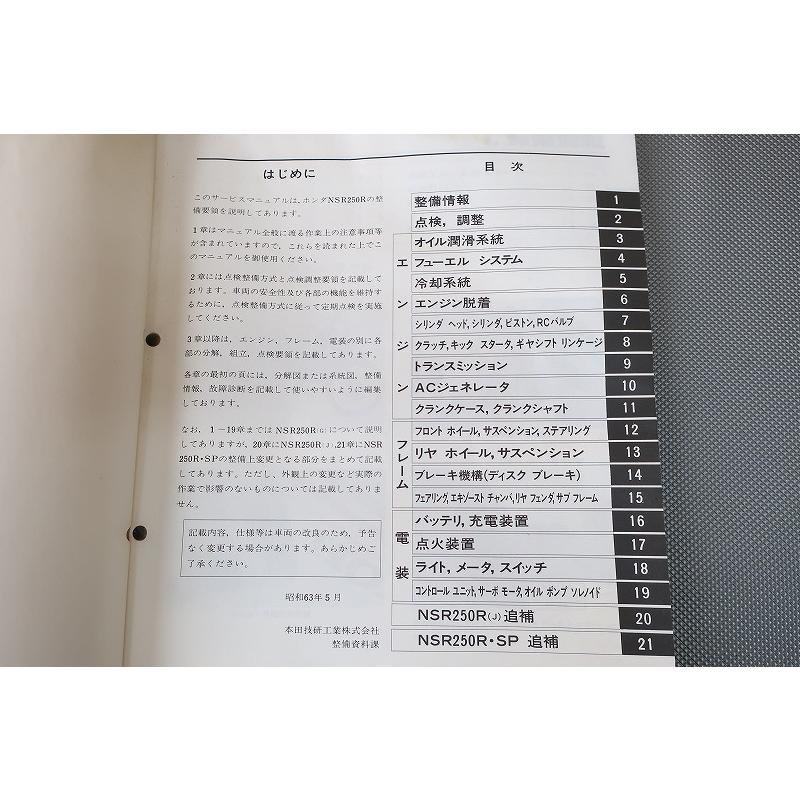 はじめに
このサービスマニュアルは、ホンダNSR250Rの整
備要領を説明してあります。
1章はマニュアル全般に渡る作業上の注意事項等
が含まれていますので、これらを読まれた上でこ
のマニュアルを御使用ください。
2章には点検整備方式と点検調整要領を記載して
おります。車両の安全性及び各部の機能を維持す
るために、点検整備方式に従って定期点検を実施
してください。
3章以降は、エンジン、フレーム、電装の別に各
部の分解、組立、点検要領を記載してあります。
各章の最初の頁には、分解図または系統図、整備
情報、故障診断を記載して使いやすいように編集
しております。
なお、1－19章まではNSR250R(G)について説明
してありますが、20章にNSR250R(J)、21章にNSR
250R・SPの整備上変更となる部分をまとめて記載
してあります。ただし、外観上の変更など実際の
作業で影響のないものについては記載してありま
せん。
記載内容、仕様等は車両の改良のため、予告
なく変更する場合があります。あらかじめご
了承ください。
昭和63年5月
本田技研工業株式会社
整備資料課
目次
整備情報 1
点検, 調整 2
エンジン
オイル潤滑系統 3
フューエル システム 4
冷却系統 5
エンジン脱着 6
シリンダ ヘッド, シリンダ, ピストン, RCバルブ 7
クラッチ, キック スタータ, ギヤシフト リンケージ 8
トランスミッション 9
ACジェネレータ 10
クランクケース, クランクシャフト 11
フレーム
フロント ホイール, サスペンション, ステアリング 12
リヤ ホイール, サスペンション 13
ブレーキ機構(ディスク ブレーキ) 14
フェアリング, エキゾースト チャンバ, リヤ フェンダ, サブ フレーム 15
電装
バッテリ, 充電装置 16
点火装置 17
ライト, メータ, スイッチ 18
コントロール ユニット, サーボ モータ, オイル ポンプ ソレノイド 19
NSR250R(J) 追補 20
NSR250R・SP 追補 21